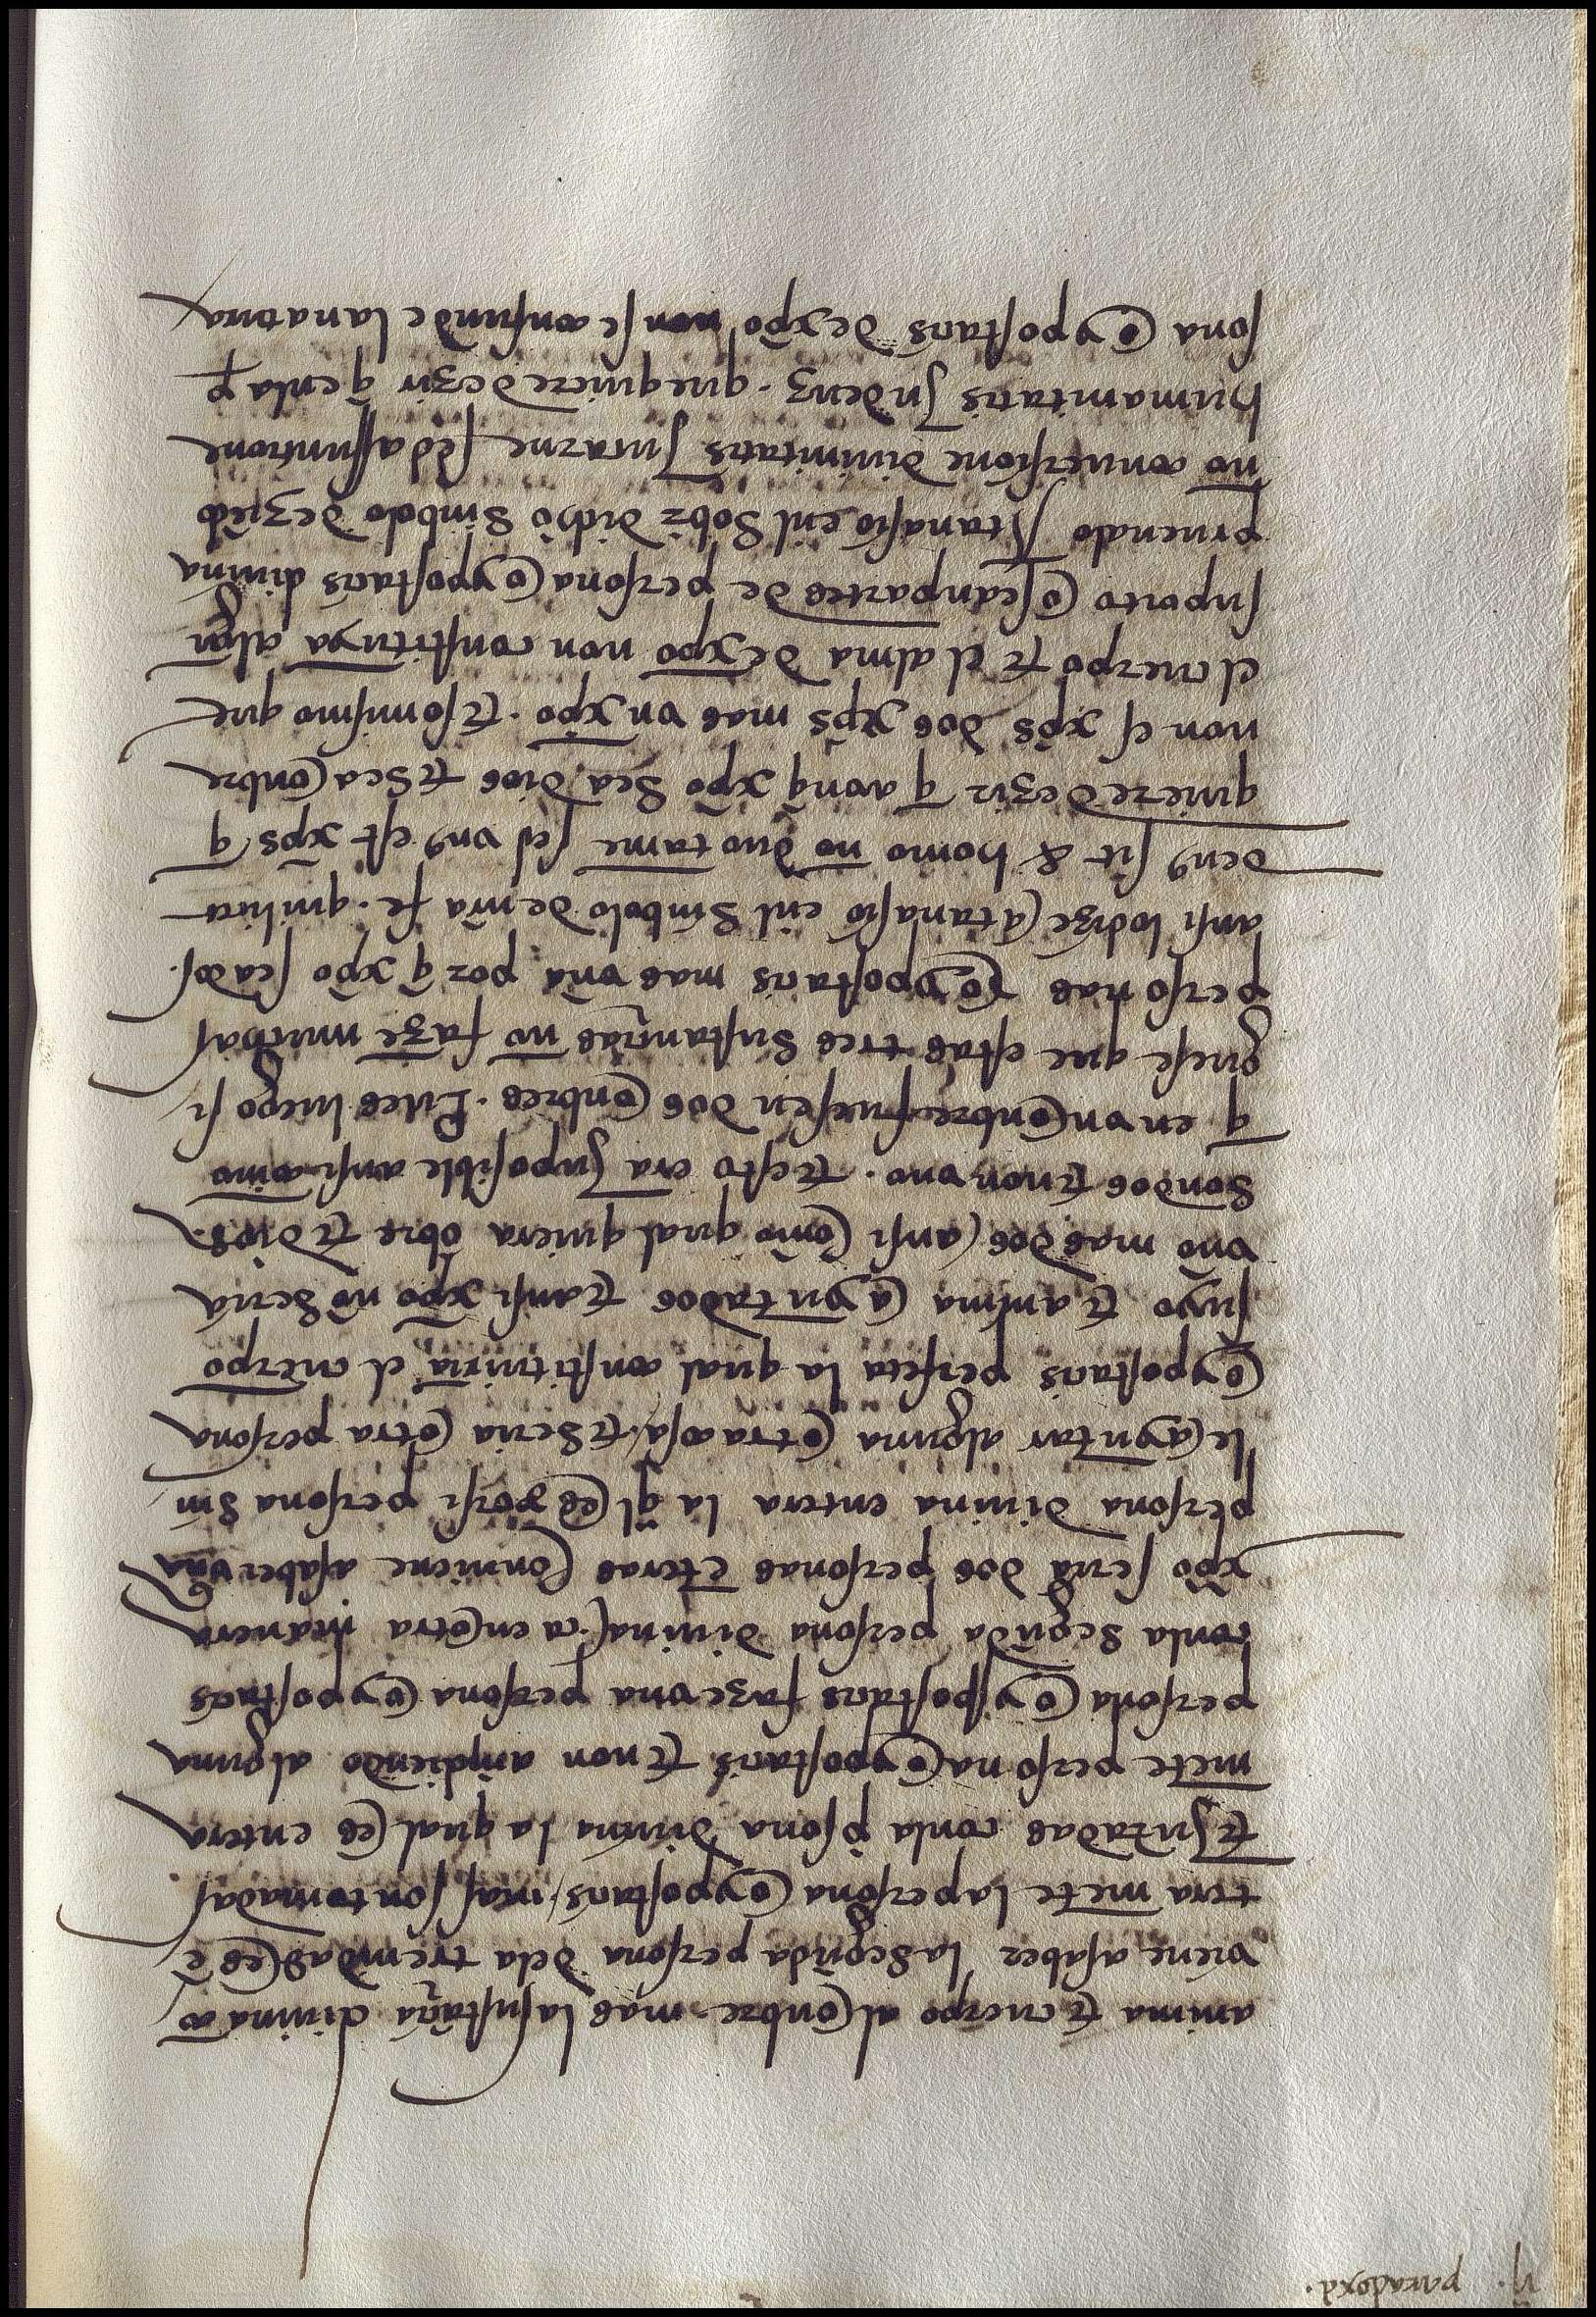 ij. paradoxa.
anima & cuerpo al onbre. mas la sustãçia diuina cõ
viene asaber la segũda persona dela trenidad es ẽ
tera mẽte la persona o ypostasis / mas son tomadas
& Juntadas conla p̱sona diuina la qual es entera
mẽte persona o ypostasis & non añadiendo alguna
persona o ypostasis faze vna persona o ypostasis
conla segũda persona diuina / ca en otra manera
xp̃o seriã dos personas ẽteras Conuiene asaber vna
persona diuina entera la q̃l es por si persona sin
le ayuntar alguna otra cosa / & seria otra persona
o ypostasis perfeta la qual constituiria el cuerpo
suyo & anima ayũtados & ansi xp̃o nõ seria
vno mas dos ansi Como qual quiera õbre & dios.
Son dos & non vno. & esto era Inposible ansi como
q̃ en vn onbre fuesen dos onbres. Pues luego si
guese que estas tres sustançias nõ fazẽ muchas
personas o ypostasis mas vna por q̃ xp̃o sea dos.
ansi lo dize atanasio enl Simbolo de nr̃a fe. qui lica
deus sit & homo nõ duo tamẽ sed vnus est xp̃s q̃
quiere dezir q̃ avnq̃ xp̃o sea dios & sea onbre
non es xp̃s dos xp̃s mas vn xp̃o. & lo mismo que
el cuerpo & el alma de xp̃o non constituya algũ
supoito o sean partes de persona o ypostasis diuina
prueualo Atanasio enl sobr̃ dicho Simbolo deziẽdo
nõ conuersione diuinitatis In carne sed assuntione
humanitatis In deum. que quiere dezir q̃ enla p̱
sona o ypostasis de xp̃o non se confunde la natura